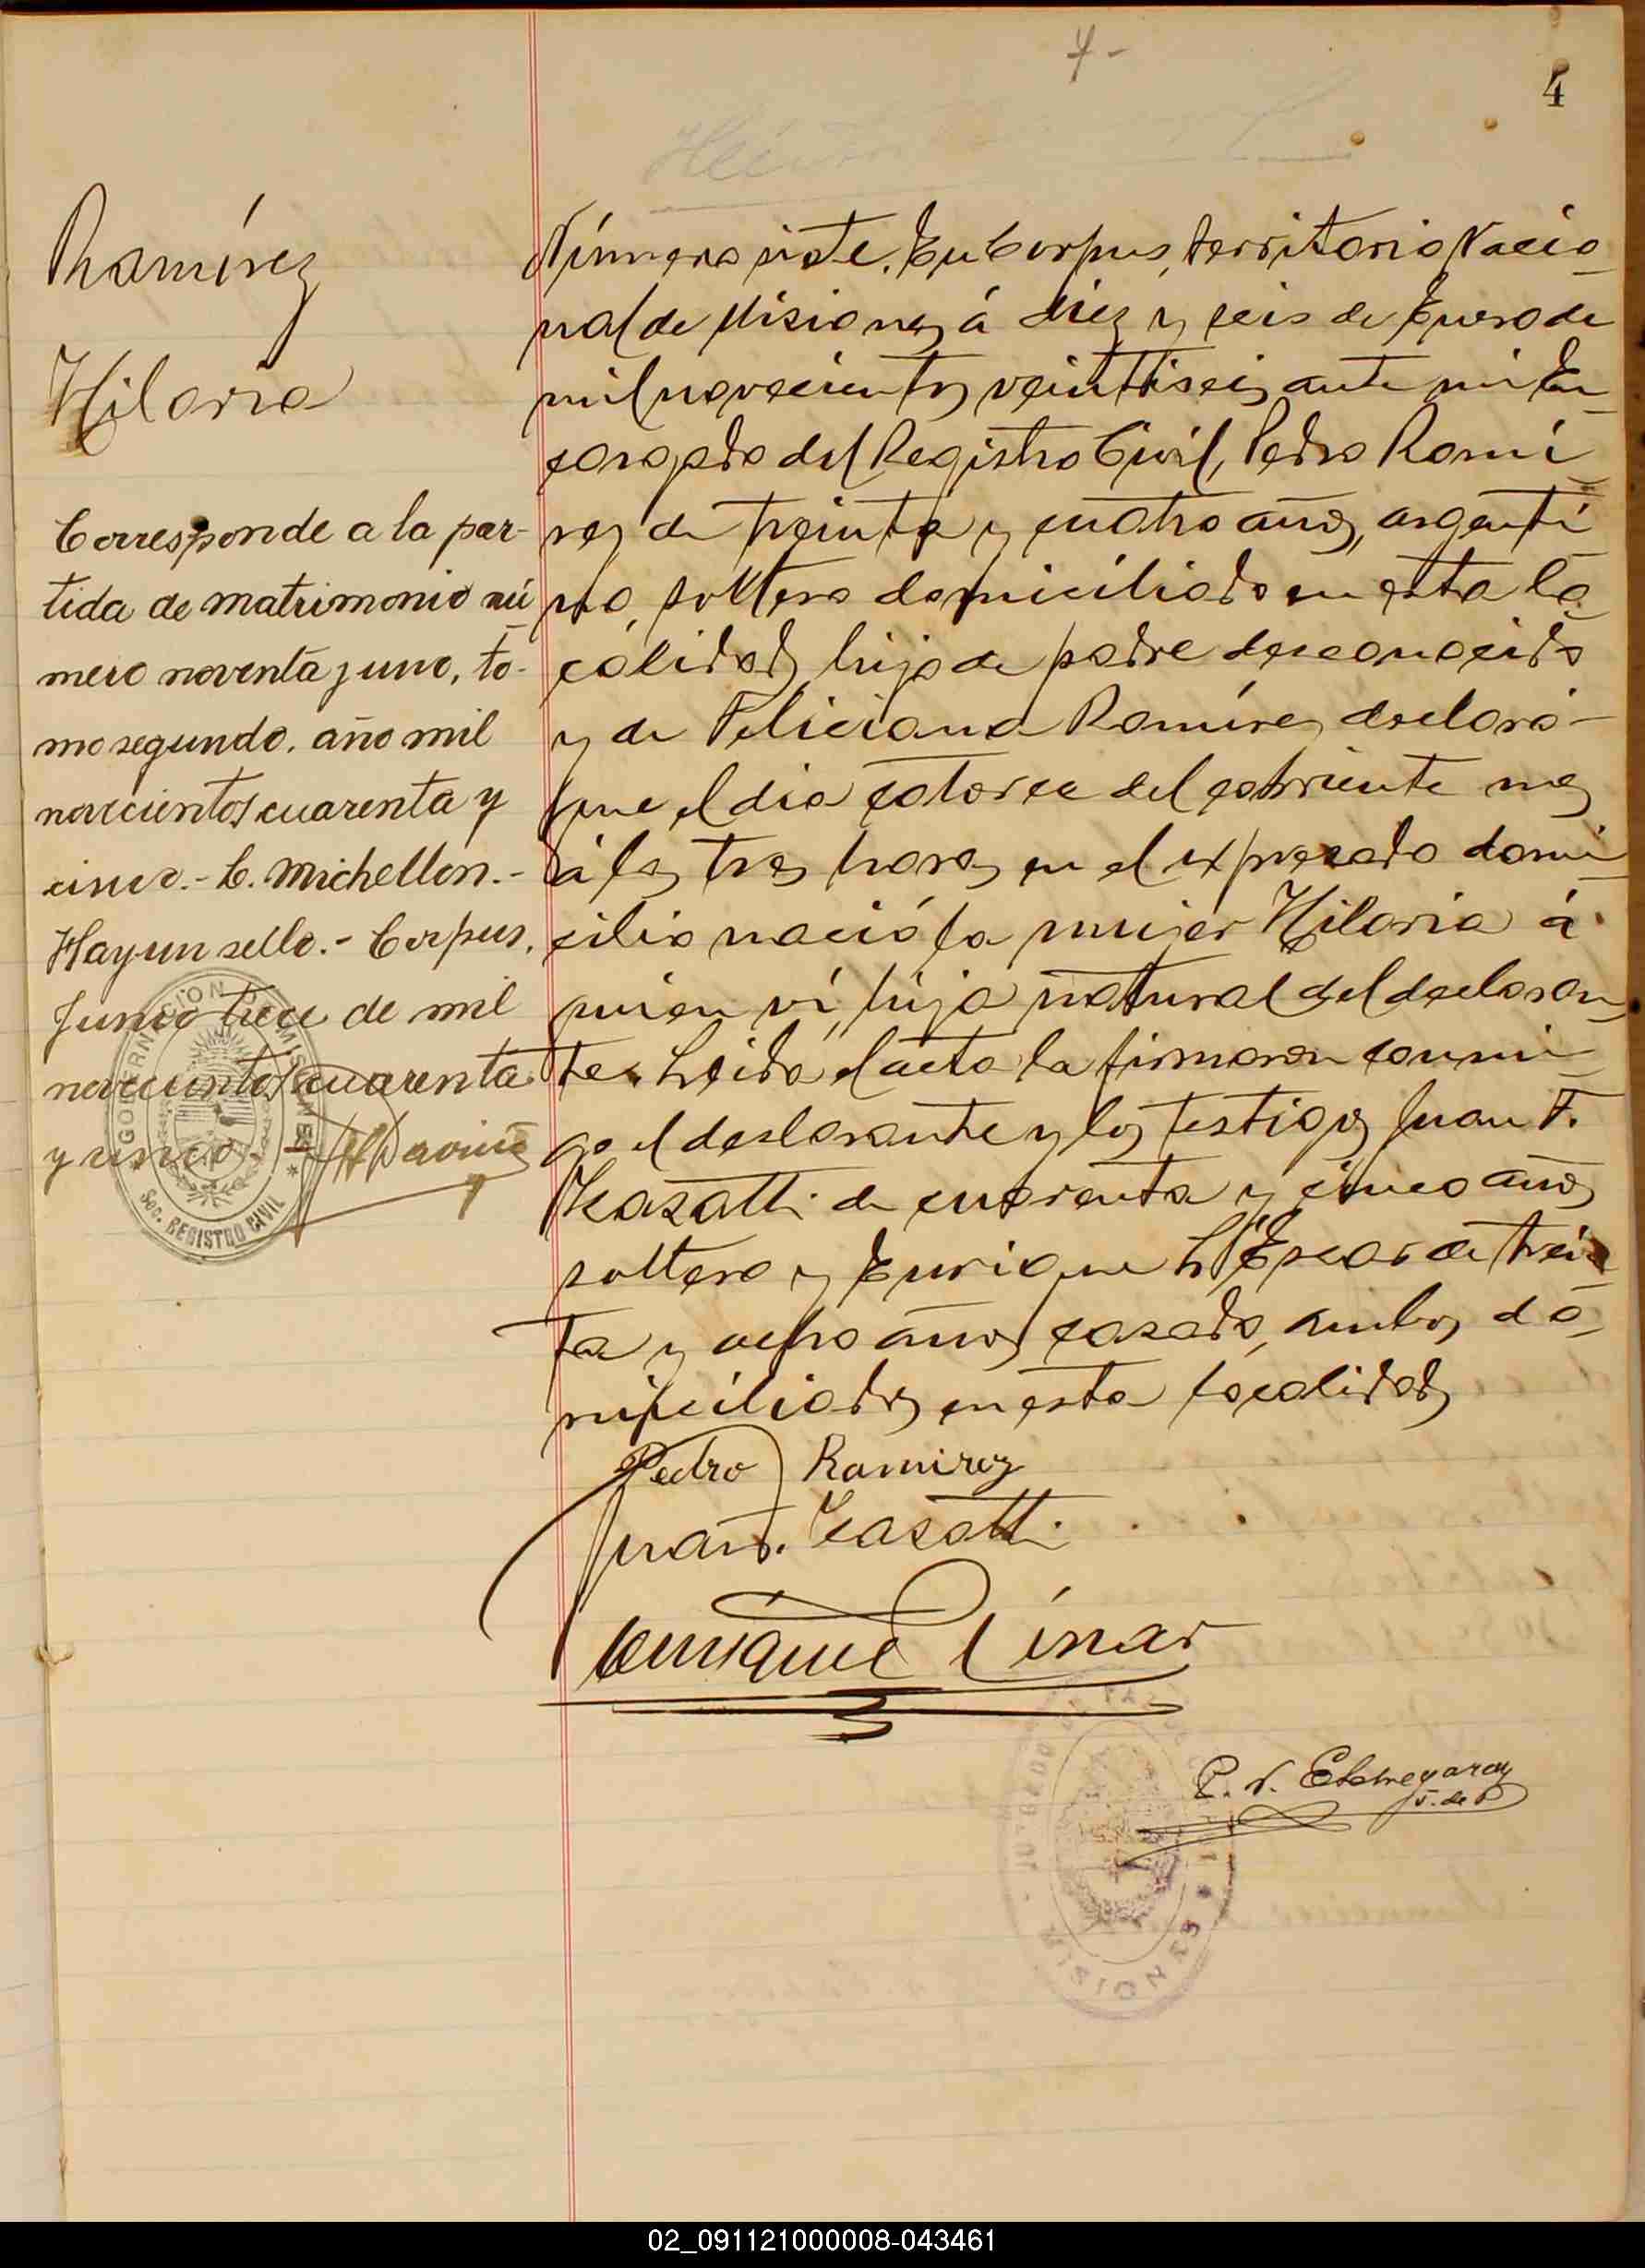 7-
4
Ramírez
Hilaria
Corresponde a la par-
tida de matrimonio nú
mero noventa y uno, to-
mo segundo, año mil
novecientos cuarenta y
cinco.- C. Michellon.-
Hay un sello.- Corpus,
Junio trece de mil
novecientos cuarenta
y cinco.-
GOBERNACION DE MISIONES
SOC. REGISTRO CIVIL
Número siete. En Corpus, Territorio Nacio
nal de Misiones á diez y seis de Enero de
mil novecientos veintiseis ante mi En
cargado del Registro Civil, Pedro Rami
rez de treinta y cuatro años, argenti
no, soltero domiciliado en esta lo
calidad, hijo de padre desconocido
y de Feliciana Ramírez declaró-
que el dia catorce del corriente mes
á las tres horas en el expresado domi
cilio nació la mujer Hilaria á
quien ví, hija natural del declaran
te. Leida el acta la firmaron conmi
go el declarante y los testigos Juan F.
Casatti de cuarenta y cinco años
soltero y Enrique de trein
ta y ocho años casado, ambos do
miciliados en esta localidad
Pedro Ramirez
Juan F. Casatti
Enrique
P. N. Etchegaray
J. de P
MISIONES
02_091121000008-043461